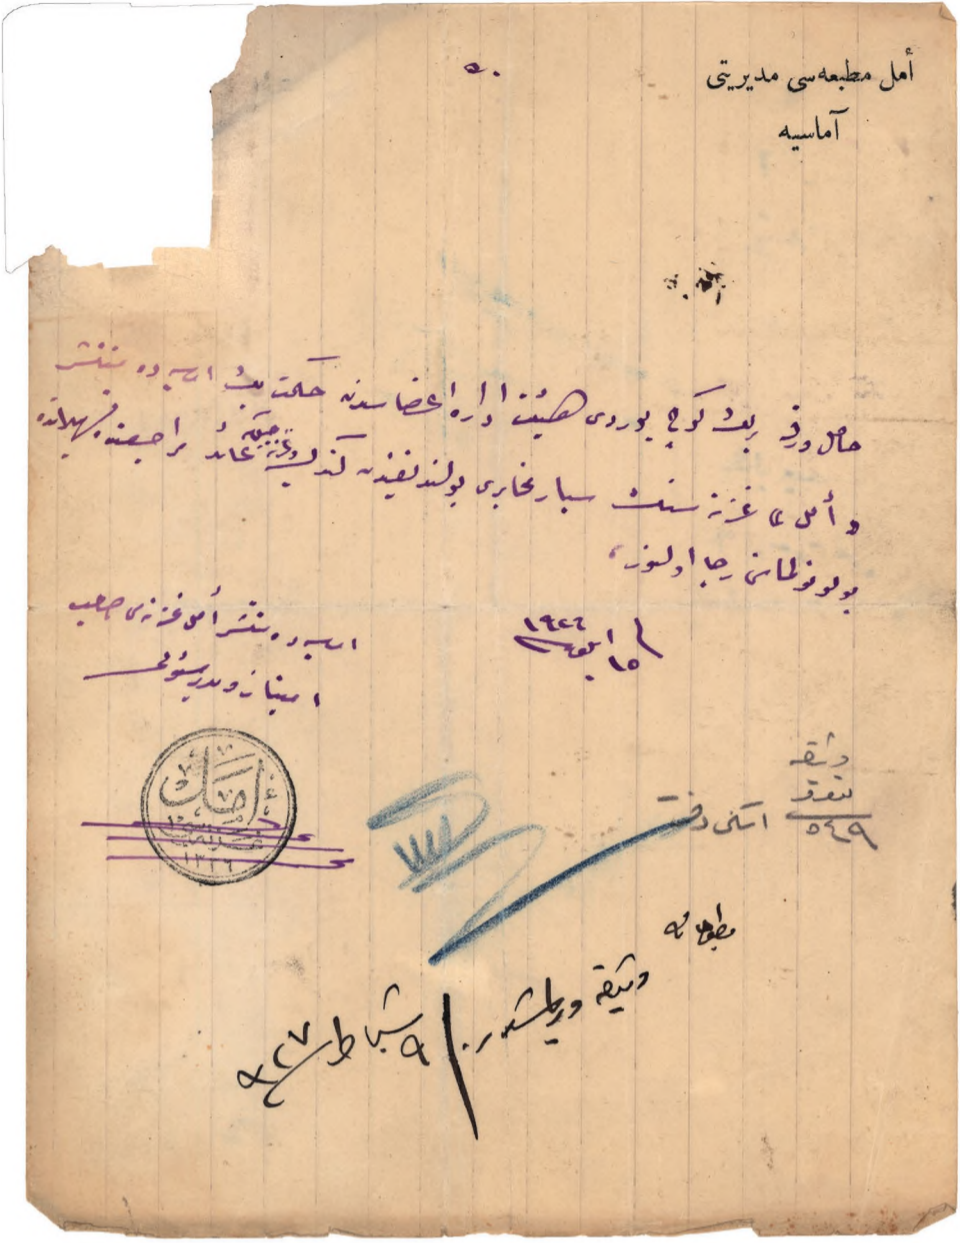 أمل مطبعه‌سی مدیریتی
آماسیه
حامل ورقه كنج یوردی هیئت اداره اعضاسندن حكمت بك اماسیه ده منتشر
« أمل » غزته سنك سیار مخابری بولندیغندن كندیسنه غزته جیلكه عائد مراجعتنده تسهیلاتده
بولونولماسی رجا اولنور،
١٥ ایلول ١٩٢٦
اماسیه ده منتشر أمل غزته سی صاحب
امتیاز و مدیر مسئولی
أمل
١٣٢٦
وثیقه
متفرقه
٥٤٩
اسكی دفتر
مطبوعاته
وثیقه ویرلمشدر.
٩ شباط ٩٢٧